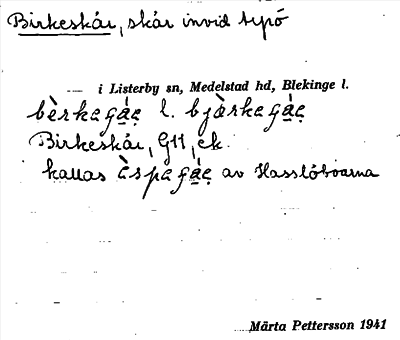 Birkeskär, skär invid typö
i Listerby sn, Medelstad hd, Blekinge l.
bèrkəgạ́ẹ l. bjèrkəgạ́ẹ
Birkeskär, G11, ek.
kallas èspəgạ́ẹ av Hasslöboarna
Märta Pettersson 1941